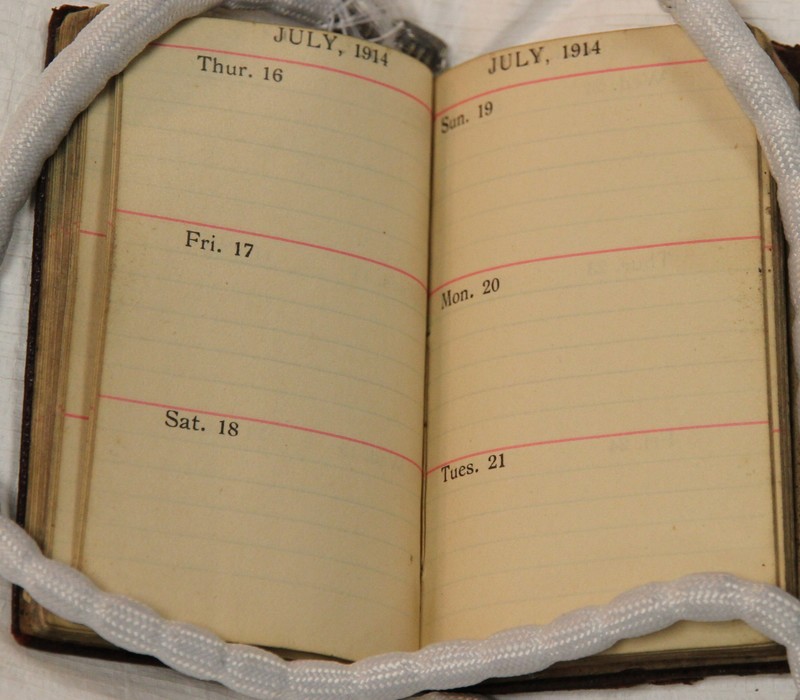 JULY, 1914
Thur. 16
Fri. 17
Sat. 18
JULY, 1914
Sun. 19
Mon. 20
Tues. 21